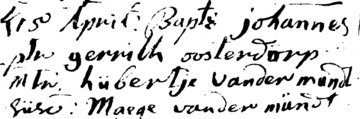 15 April: Bapts johannes
ptr gerrith oosterdorp
Mtr. hübertje vander münd
Süsc: Maege vander mündt